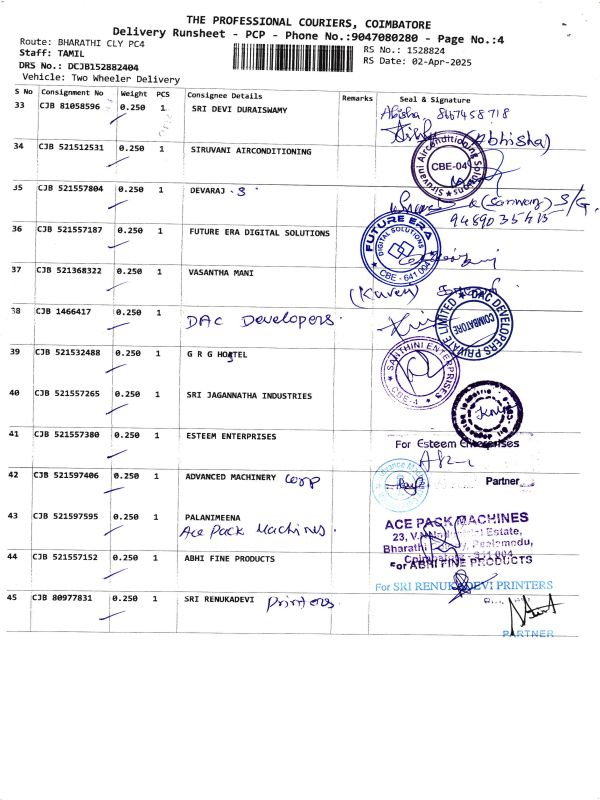 THE PROFESSIONAL COURIERS, COIMBATORE
Delivery Runsheet - PCP - Phone No.:9047080280 - Page No.:4
Route: BHARATHI CLY PC4
Staff: TAMIL
DRS No.: DCJB152882404
Vehicle: Two Wheeler Delivery
RS No.: 1528824
RS Date: 02-Apr-2025
S No Consignment No Weight PCS Consignee Details Remarks Seal & Signature
33 CJB 81058596 0.250 1 SRI DEVI DURAISWAMY
Abisha 8667458718
(Abhisha)
34 CJB 521512531 0.250 1 SIRUVANI AIRCONDITIONING
Siruvani Airconditioning Solutions
CBE-04
35 CJB 521557804 0.250 1 DEVARAJ . S
S/G.
9489035413
36 CJB 521557187 0.250 1 FUTURE ERA DIGITAL SOLUTIONS
FUTURE ERA
DIGITAL SOLUTIONS
CBE - 641 004
37 CJB 521368322 0.250 1 VASANTHA MANI
38 CJB 1466417 0.250 1 DAC Developers.
DAC DEVELOPERS PRIVATE LIMITED
COIMBATORE
39 CJB 521532488 0.250 1 G R G HOSTEL
ENTERPRISES
CBE-4
40 CJB 521557265 0.250 1 SRI JAGANNATHA INDUSTRIES
41 CJB 521557380 0.250 1 ESTEEM ENTERPRISES
For Esteem Enterprises
42 CJB 521597406 0.250 1 ADVANCED MACHINERY Corp
Partner
43 CJB 521597595 0.250 1 PALANIMEENA
Ace Pack Machines.
ACE PACK MACHINES
Estate,
Bharathi Peelamedu,
Coimbatore - 641 004
44 CJB 521557152 0.250 1 ABHI FINE PRODUCTS
For ABHI FINE PRODUCTS
45 CJB 80977831 0.250 1 SRI RENUKADEVI Printers.
For SRI RENUKADEVI PRINTERS
PARTNER